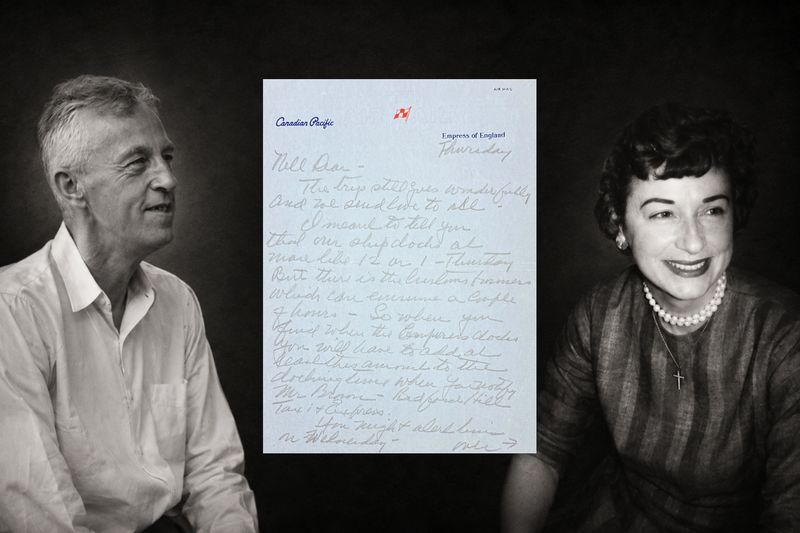 AIR MAIL
Canadian Pacific
Empress of England
Thursday
Nell Dear -
The trip still goes wonderfully
And we send love to all -
I meant to tell you
that our ship docks at
more like 12 or 1 - Thursday
But there is the Customs
which can consume a couple
of hours - So when you
find when the Empress docks
You will have to add at
least this amount to the
docking time when you notify
Mr Brown - Bedford Hill
Taxi & Express.
You might alert him
on Wednesday -
over →